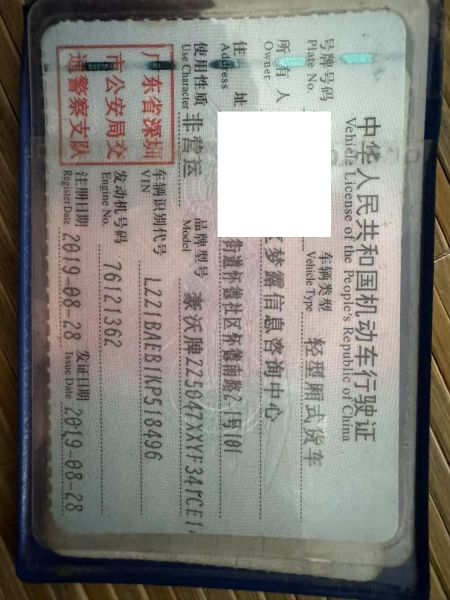 中华人民共和国机动车行驶证
Vehicle License of the People's Republic of China
号牌号码
Plate No.
车辆类型 轻型厢式货车
Vehicle Type
所有人 梦露信息咨询中心
Owner
住址 街道怀德社区怀德南路2-1号101
Address
使用性质 非营运 品牌型号 豪沃牌ZZ5047XXYF341CE1
Use Character Model
广东省深圳
市公安局交
通警察支队
车辆识别代号 LZZ1BAEB1KP518496
VIN
发动机号码 76121362
Engine No.
注册日期 2019-08-28 发证日期 2019-08-28
Register Date Issue Date